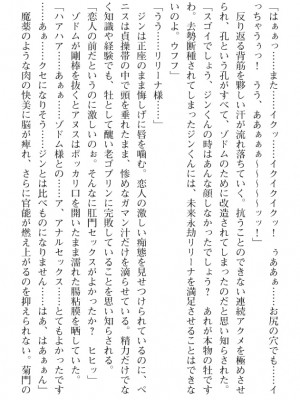 「はぁ……また……イっ……イクイクイクっ！　ぅああぁ……お尻の穴でも……イ
っちゃうぅっ！　うう、あああぁぁぁ～～～～ッッ！」
反り返る背筋を夥しい汗が流れ落ちていく。抗うことのできない連続アクメを極めさせ
られ、孔という孔がすべて、ゾドムのために改造されてしまったのだと思い知らされた。
「スゴイでしょう、ジンくんの時はあんな顔しなかったでしょう？　あれが本物の牡です
わ。去勢断種されてしまったジンくんには、未来永劫リリーナを満足させることはできな
いのよ。ウフフ」
「うう……リリーナ様……」
ジンは正座のまま悔しげに唇を噛む。恋人の激しい痴態を見せつけられているのに、ペ
ニスは貞操帯の中で頭を垂れたまま、惨めなガマン汁だけを滴らせている。精力だけでな
く知識や経験でも、牡として醜い老ゴブリンに完敗していることを思い知らされた。
「恋人の前だというのに激しいのぉ。そんなに肛門セックスがよかったか？　ヒヒッ」
ゾドムが剛棒を抜くとアヌスはポッカリ口を開いたまま濡れた腸粘膜を晒していた。
「ハアハア……ああ、ゾドム様との……ア、アナルセックス……とてもよかったです
……あぁ……クセになりそう……ジンとは比べものになりません……はあ、はぁぁん」
魔薬のような肉の快美に脳が痺れ、さらに官能が燃え上がるのを抑えられない。菊門の